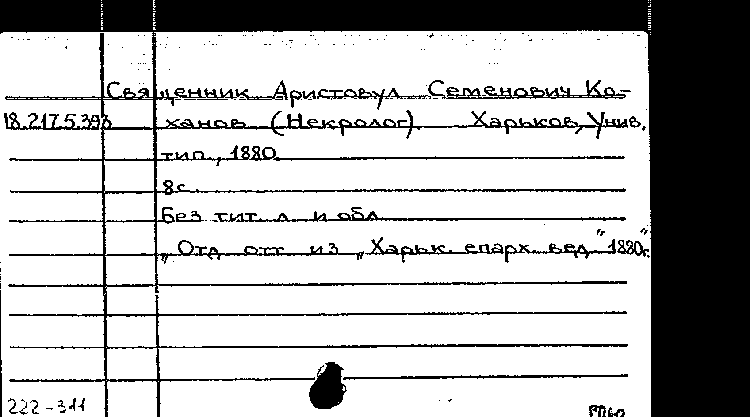 Священник Аристовул Семенович Ко-
18.217.5.393 ханов (Некролог). Харьков, Унив.
тип., 1880.
8с.
Без тит. л. и обл.
„Отд. отт. из „Харьк. епарх. вед." 1880г."
222-311